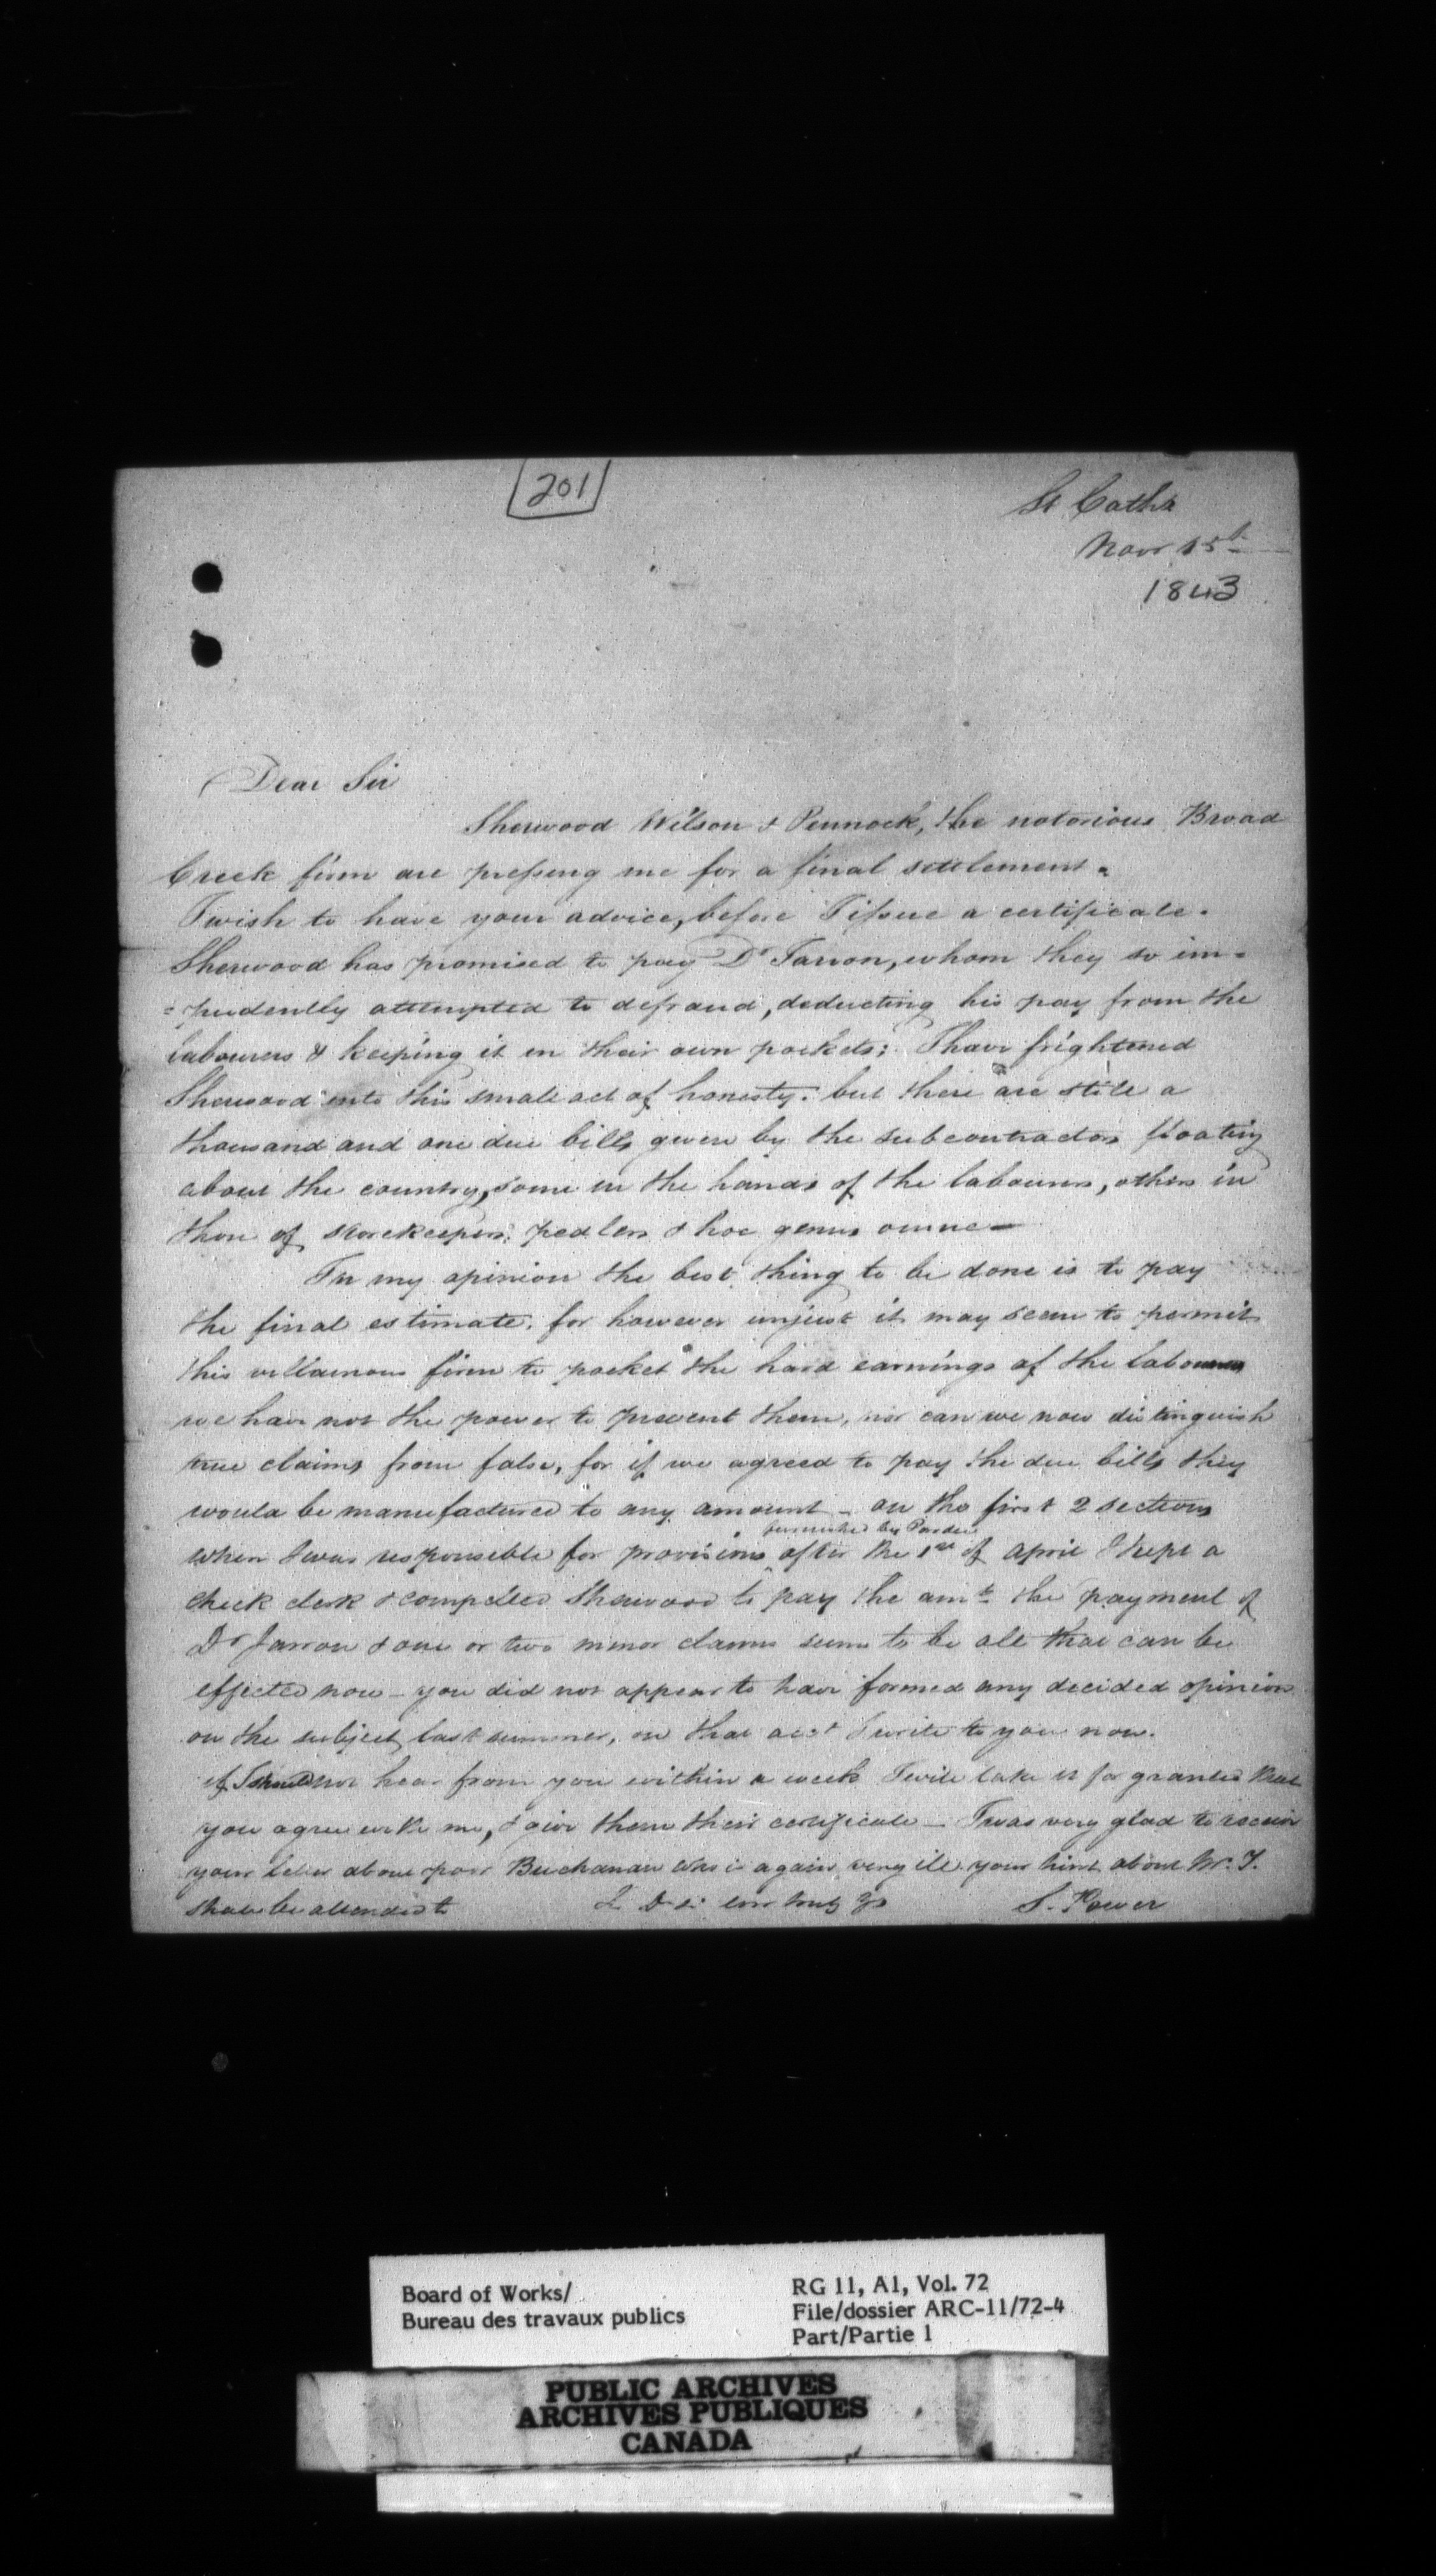 201
St Caths
Novr 15th
1843
Dear Sir
Sherwood Wilson & Pennock, the notorious Broad
Creek firm are pressing me for a final settlement.
I wish to have your advice, before I issue a certificate.
Sherwood has promised to pay Dr Jarron, whom they so im=
=pudently attempted to defraud, deducting his pay from the
labourers & keeping it in their own pockets; I have frightened
Sherwood into this small act of honesty. but there are still a
thousand and one due bills given by the subcontractors floating
about the country, some in the hands of the labourers, others in
those of storekeepers, pedlers & hoc genus omne —
In my opinion the best thing to be done is to pay
the final estimate. for however unjust it may seem to permit
this villainous firm to pocket the hard earnings of the labourers
we have not the power to prevent them, nor can we now distinguish
true claims from false, for if we agreed to pay the due bills they
would be manufactured to any amount – on the first 2 sections
furnished by Pardee
when I was responsible for provisions after the 1st of April I kept a
check clerk & compelled Sherwood to pay the amt. the payment of
Dr Jarron & one or two minor claims seems to be all that can be
effected now – you did not appear to have formed any decided opinion
on the subject last summer, on that acct I write to you now.
if I should not hear from you within a week I will take it for granted that
you agree with me, & give them their certificate – I was very glad to receive
your letter about poor Buchanan who is again very ill. your hint about Mr. T.
shall be attended to
S. Power
Board of Works/
Bureau des travaux publics
RG 11, A1, Vol. 72
File/dossier ARC-11/72-4
Part/Partie 1
PUBLIC ARCHIVES
ARCHIVES PUBLIQUES
CANADA